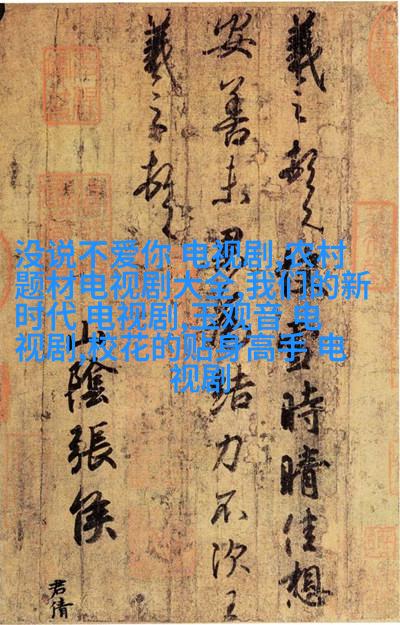 没说不爱你 电视剧,农村
题材电视剧大全,我们的新
时代 电视剧,玉观音 电
视剧,校花的贴身高手 电
视剧
羲之頓首快雪時晴佳想
安善未果為結力不次王
羲之頓首
山陰張侯
君倩